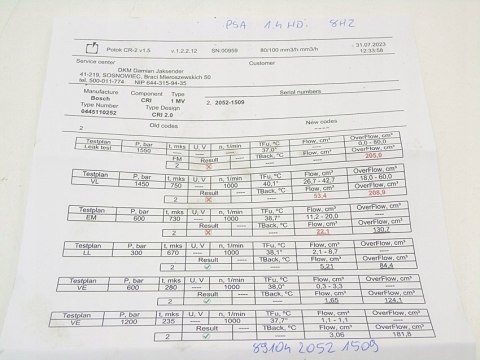 PSA 1.4 HDi 8HZ
Potok CR-2 v1.5 v.1.2.2.12 SN:00959 80/100 mm3/h mm3/h 31.07.2023
12:33:58
Service center Customer
DKM Damian Jaksender
41-219, SOSNOWIEC, Braci Mieroszewskich 50
tel. 500-011-774 NIP 644-315-94-35
Manufacture Component Type Serial numbers
Bosch CRI 1 MV 2. 2052-1509
Type Number Type Design
0445110252 CRI 2.0
Old codes New codes
2 ----
Testplan P, bar t, mks U, V n, 1/min TFu, ºC Flow, cm³ OverFlow, cm³
Leak test 1550 ---- ---- ---- 37,0° ---- 0,0 - 60,0
FM Result TBack, ºC Flow, cm³ OverFlow, cm³
2 ☒ ---- ---- ---- 205,0
Testplan P, bar t, mks U, V n, 1/min TFu, ºC Flow, cm³ OverFlow, cm³
VL 1450 750 ---- 1000 40,1° 26,7 - 42,7 18,0 - 60,0
Result TBack, ºC Flow, cm³ OverFlow, cm³
2 ☒ ---- ---- 53,4 208,9
Testplan P, bar t, mks U, V n, 1/min TFu, ºC Flow, cm³ OverFlow, cm³
EM 600 730 ---- 1000 38,7° 11,2 - 20,0 ----
Result TBack, ºC Flow, cm³ OverFlow, cm³
2 ☒ ---- ---- 22,1 130,7
Testplan P, bar t, mks U, V n, 1/min TFu, ºC Flow, cm³ OverFlow, cm³
LL 300 670 ---- 1000 38,1° 2,1 - 8,7 ----
Result TBack, ºC Flow, cm³ OverFlow, cm³
2 ☑ ---- ---- 5,21 84,4
Testplan P, bar t, mks U, V n, 1/min TFu, ºC Flow, cm³ OverFlow, cm³
VE 600 280 ---- 1000 38,0° 0,3 - 3,3 ----
Result TBack, ºC Flow, cm³ OverFlow, cm³
2 ☑ ---- ---- 1,65 124,1
Testplan P, bar t, mks U, V n, 1/min TFu, ºC Flow, cm³ OverFlow, cm³
VE 1200 235 ---- 1000 37,7° 1,1 - 1,1 ----
Result TBack, ºC Flow, cm³ OverFlow, cm³
2 ☑ ---- ---- 3,06 181,8
89104 2052 1509